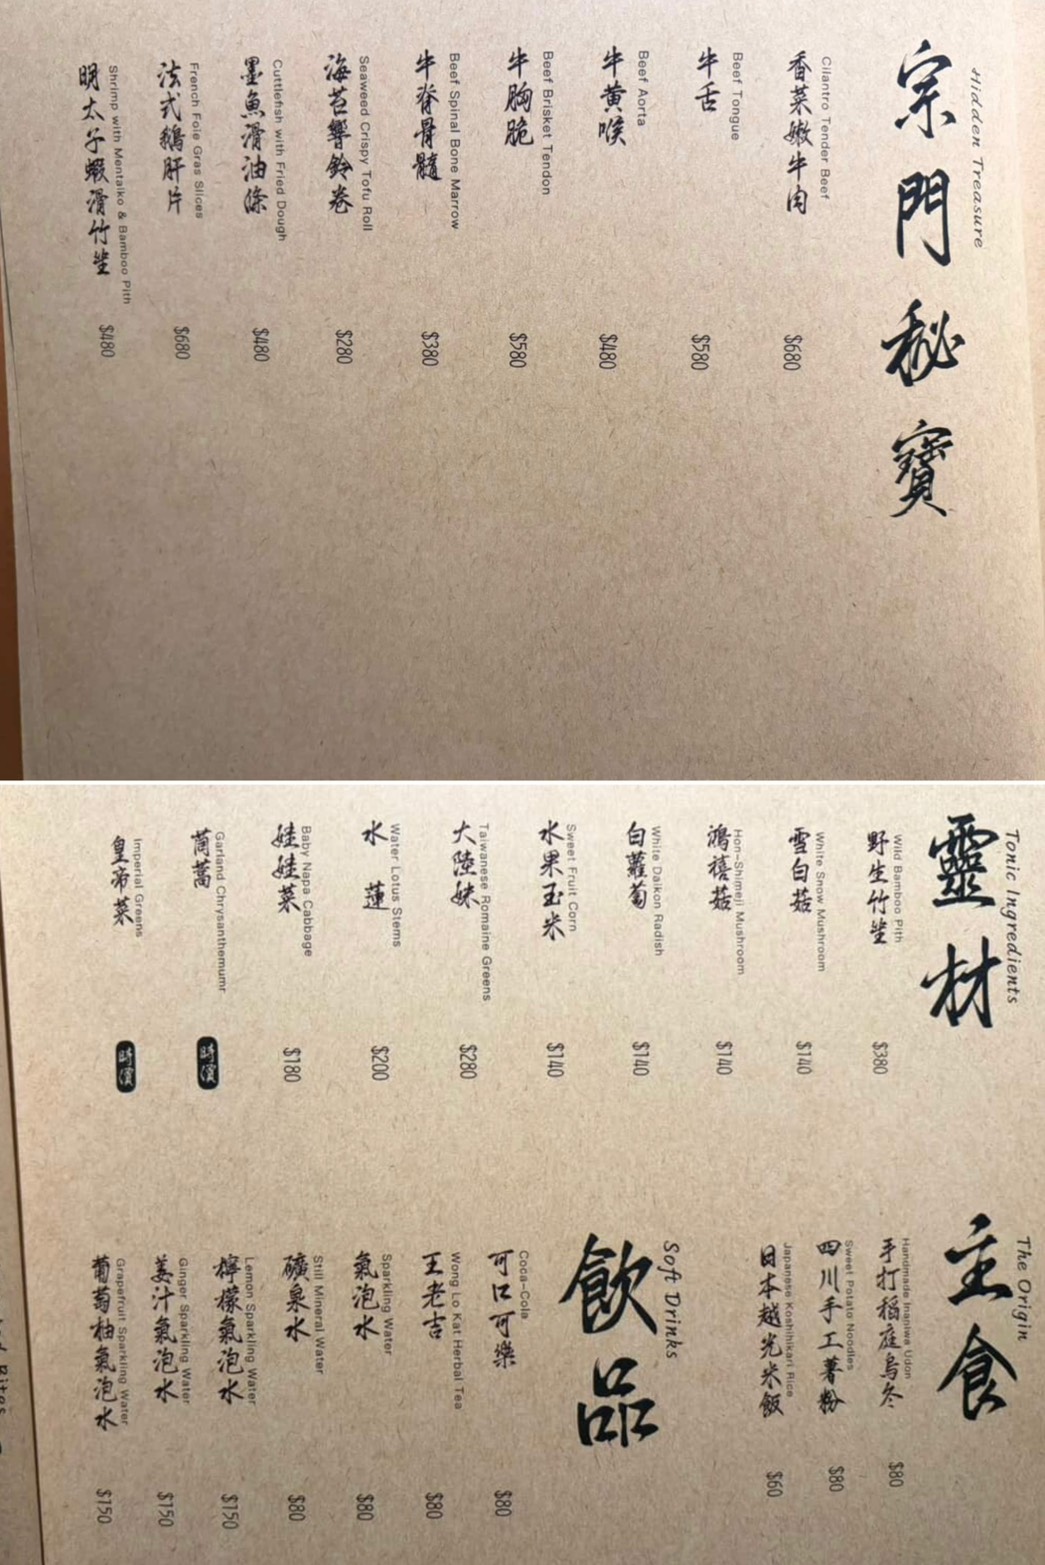 宗門秘寶
Hidden Treasure
香菜嫩牛肉
Cilantro Tender Beef
$680
牛舌
Beef Tongue
$580
牛黃喉
Beef Aorta
$480
牛胸脆
Beef Brisket Tendon
$580
牛脊骨髓
Beef Spinal Bone Marrow
$380
海苔響鈴卷
Seaweed Crispy Tofu Roll
$280
墨魚滑油條
Cuttlefish with Fried Dough
$480
法式鵝肝片
French Foie Gras Slices
$680
明太子蝦滑竹笙
Shrimp with Mentaiko & Bamboo Pith
$480
靈材
Tonic Ingredients
野生竹笙
Wild Bamboo Pith
$380
雪白菇
White Snow Mushroom
$140
鴻禧菇
Hon-Shimeji Mushroom
$140
白蘿蔔
White Daikon Radish
$140
水果玉米
Sweet Fruit Corn
$140
大陸妹
Taiwanese Romaine Greens
$280
水蓮
Water Lotus Stems
$200
娃娃菜
Baby Napa Cabbage
$180
茼蒿
Garland Chrysanthemumr
時價
皇帝菜
Imperial Greens
時價
主食
The Origin
手打稻庭烏冬
Handmade Inaniwa Udon
$80
四川手工薯粉
Sweet Potato Noodles
$80
日本越光米飯
Japanese Koshihikari Rice
$60
飲品
Soft Drinks
可口可樂
Coca-Cola
$80
王老吉
Wong Lo Kat Herbal Tea
$80
氣泡水
Sparkling Water
$80
礦泉水
Still Mineral Water
$80
檸檬氣泡水
Lemon Sparkling Water
$150
姜汁氣泡水
Ginger Sparkling Water
$150
葡萄柚氣泡水
Grapefruit Sparkling Water
$150